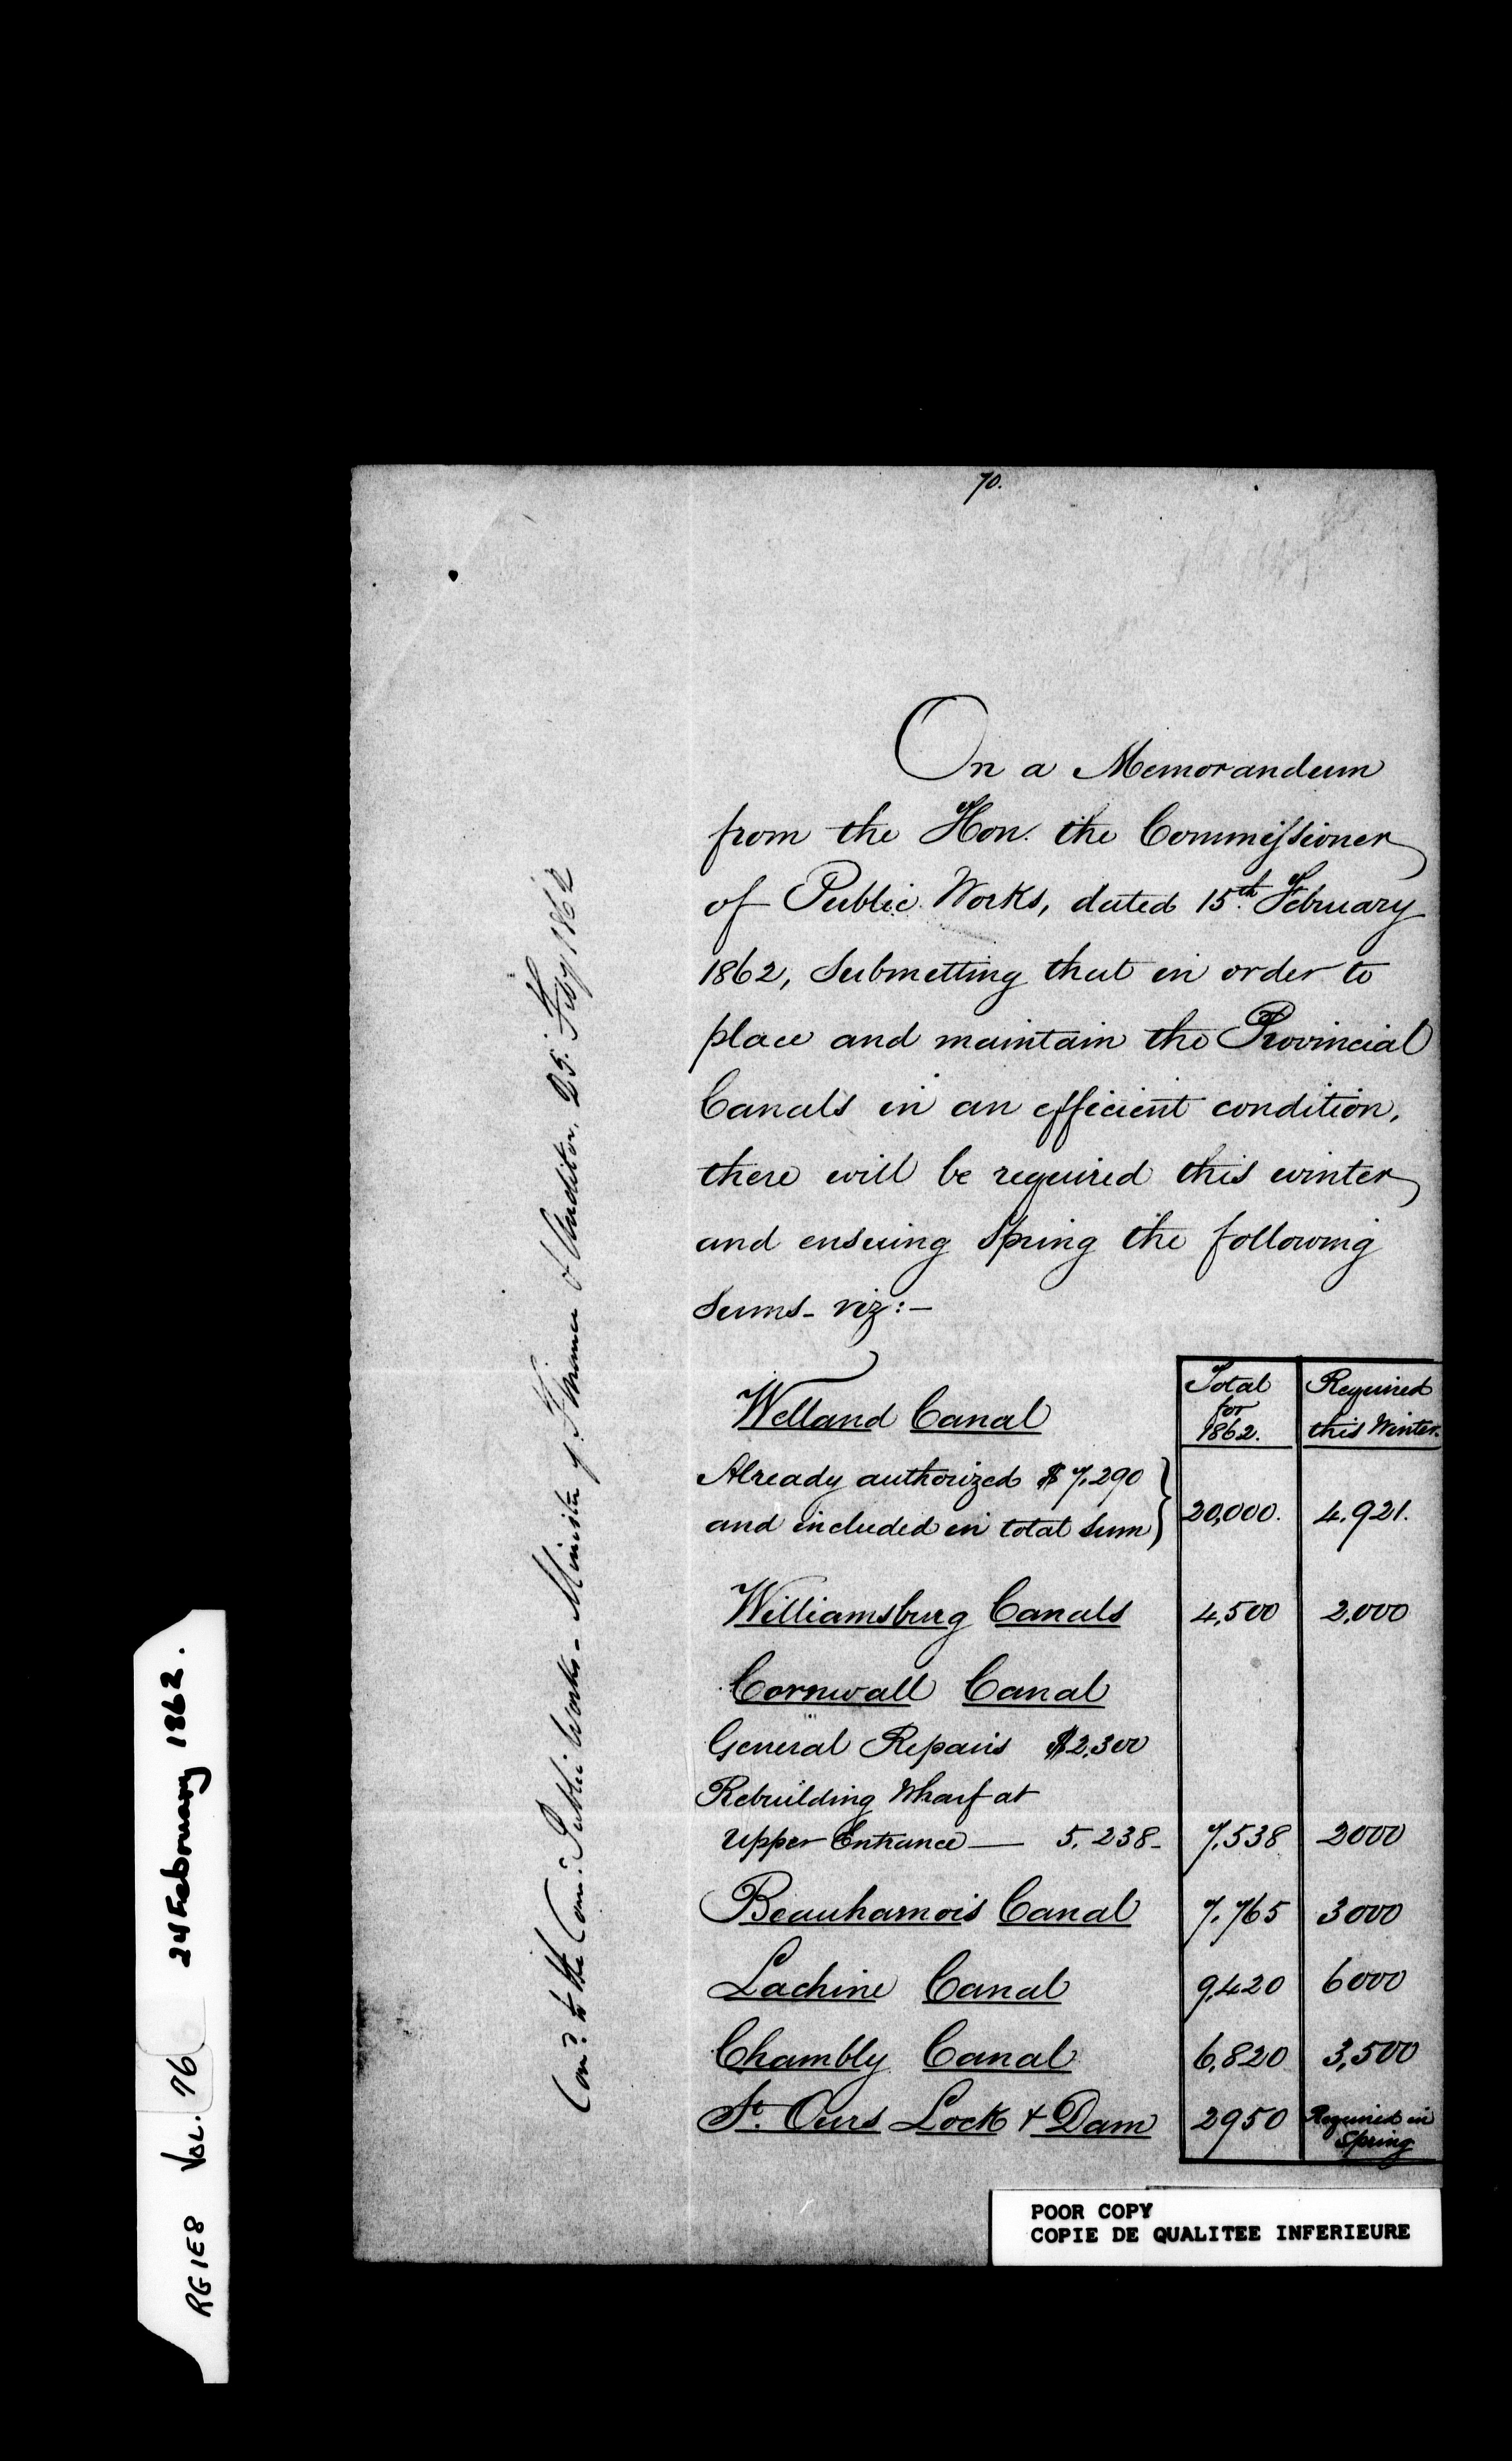 70.
On a Memorandum
from the Hon. the Commissioner
of Public Works, dated 15th February
1862, Submitting that in order to
place and maintain the Provincial
Canals in an efficient condition,
there will be required this winter
and ensuing Spring the following
Sums - viz:-
Total for 1862. Required this Winter.
Welland Canal
Already authorized $7,290
and included in total sum } 20,000. 4,921.
Williamsburg Canals 4,500 2,000
Cornwall Canal
General Repairs $2,300
Rebuilding Wharf at
Upper Entrance — 5,238- 7,538 2000
Beauharnois Canal 7,765 3000
Lachine Canal 9,420 6000
Chambly Canal 6,820 3,500
St. Ours Lock & Dam 2950 Required in Spring
Comd. to the Comr. Public Works - Minister of Finance & Auditor, 25th Feby 1862
RG1E8 VOL. 76 24 February 1862.
POOR COPY
COPIE DE QUALITEE INFERIEURE